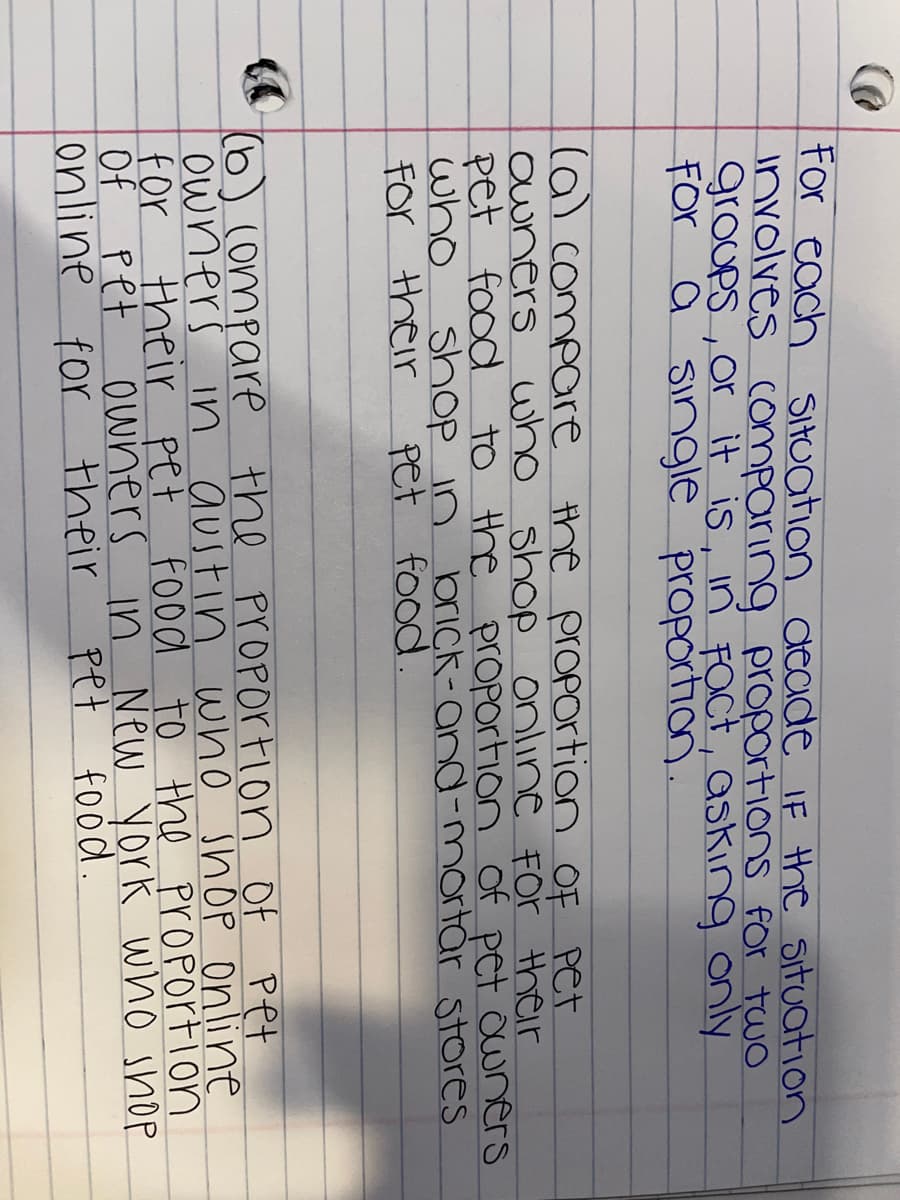 For each situation decide if the situation
involves comparing proportions for two
groups, or it is, in fact, asking only
for a single proportion.
(a) compare the proportion of pet
owners who shop online for their
pet food to the proportion of pet owners
who shop in brick-and-mortar stores
for their pet food.
(b) compare the proportion of pet
owners in austin who shop online
for their pet food to the proportion
of pet owners in New York who shop
online for their pet food.